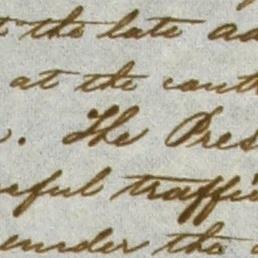 the late
at the
. The Pres
eful traffi
under the